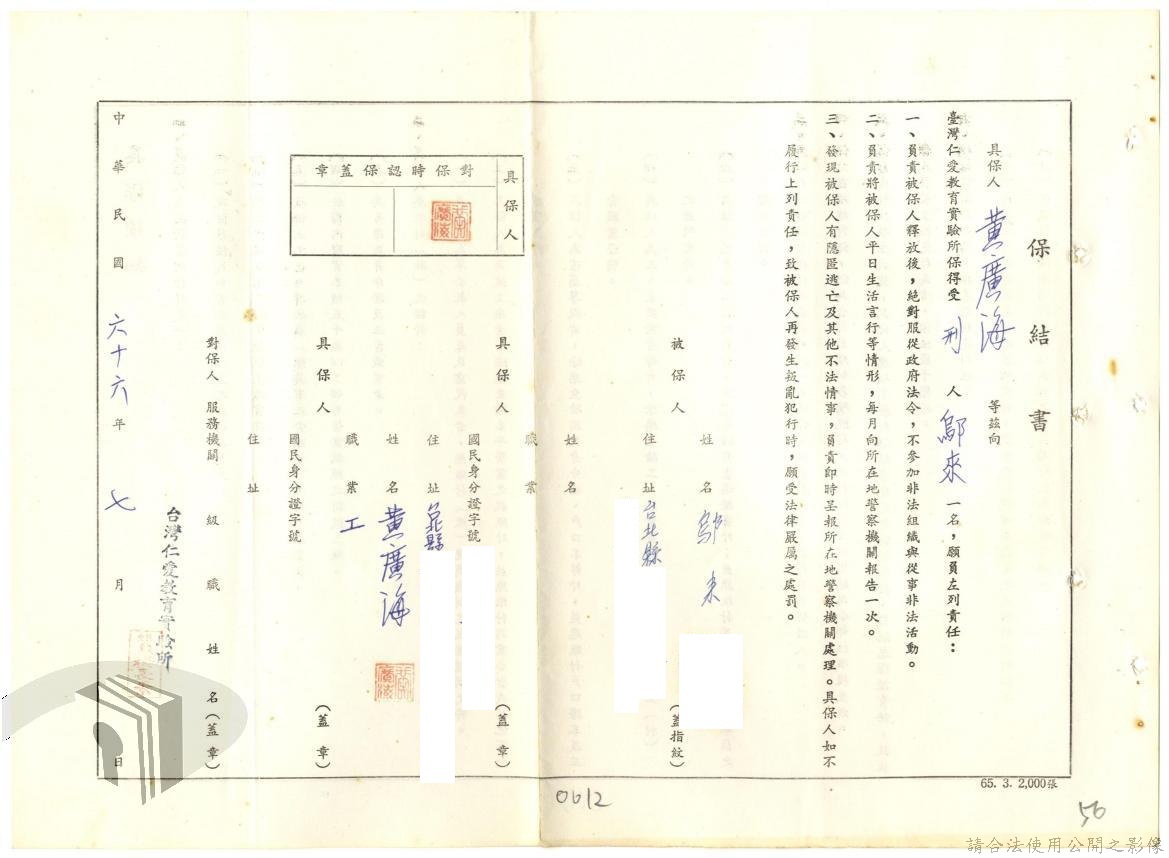 保結書
具保人 黃廣海 等茲向
臺灣仁愛教育實驗所保得受 刑 人 鄔來 一名，願負左列責任：
一、負責被保人釋放後，絕對服從政府法令，不參加非法組織與從事非法活動。
二、負責將被保人平日生活言行等情形，每月向所在地警察機關報告一次。
三、發現被保人有隱匿逃亡及其他不法情事，負責即時呈報所在地警察機關處理。具保人如不
履行上列責任，致被保人再發生叛亂犯行時，願受法律嚴厲之處罰。
被保人
姓名 鄔來
住址 台北縣
（蓋指紋）
具保人
姓名
職業
國民身分證字號
住址 縣
（蓋章）
具保人
姓名 黃廣海
職業 工
國民身分證字號
住址
（蓋章）
對保人 服務機關 級職 姓名（蓋章）
台灣仁愛教育實驗所
中華民國 六十六 年 七 月 日
具保人
對保時認保蓋章
65. 3. 2,000張
0612
56
請合法使用公開之影像